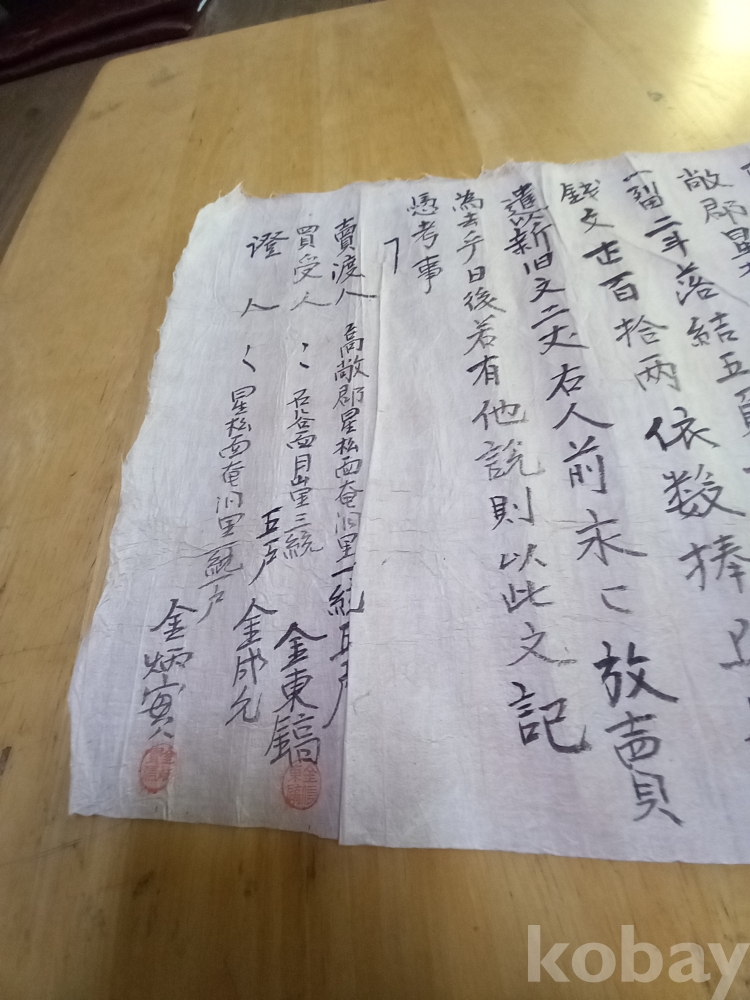 敞郡星
二斗落結五
錢文 百拾兩依数捧上
遣以新旧文二丈右人前永〻放賣
為去乎日後若有他說則以此文記
憑考事
賣渡人 高敞郡星松面奄洞里一統五戶 金東鎬
買受人〻 石谷面月山里三統五戶 金成允
證人〻 星松面奄洞里一統一戶 金炳實
kobay